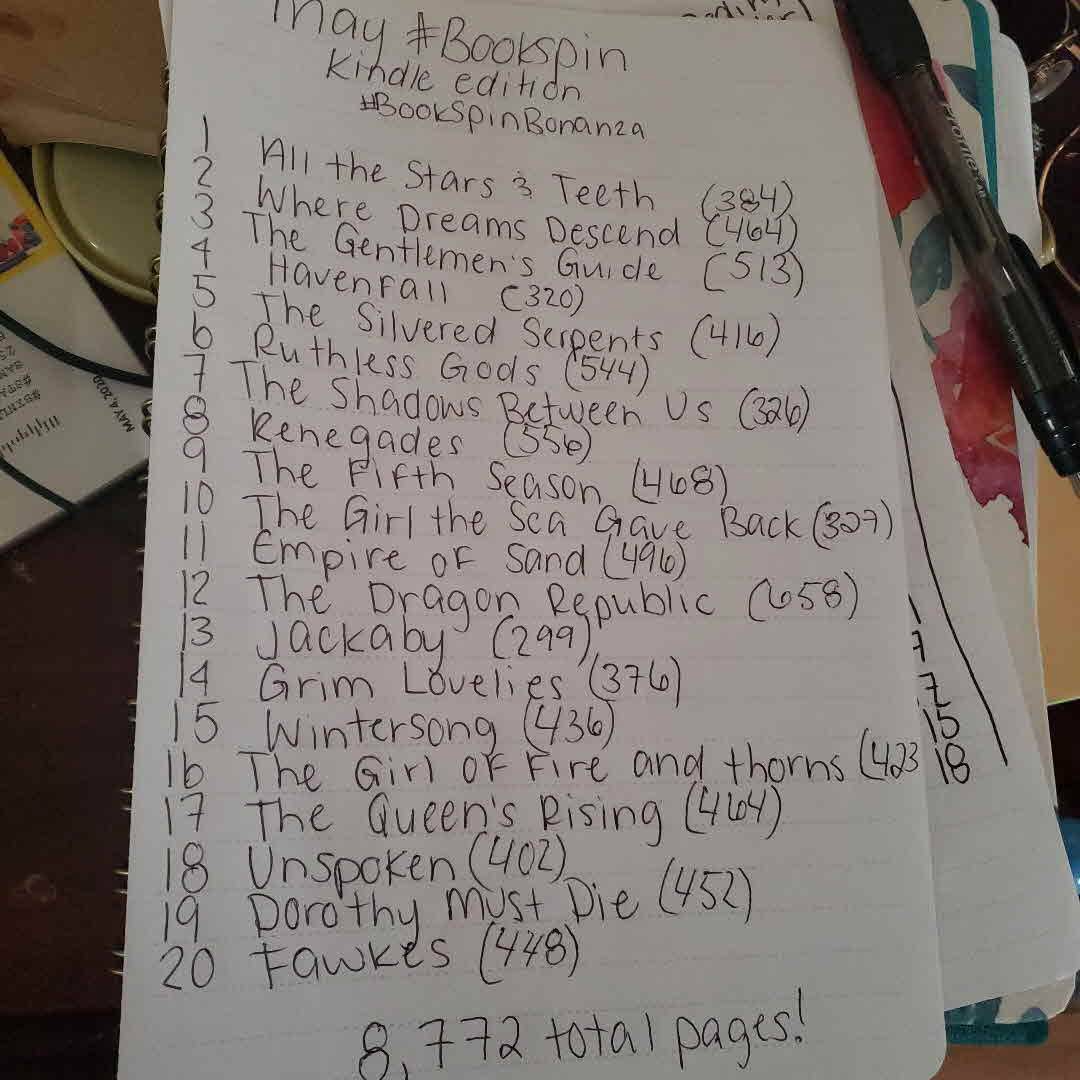 May #Bookspin
Kindle edition
#BookSpinBonanza
1 All the Stars & Teeth (384)
2 Where Dreams Descend (464)
3 The Gentlemen's Guide (513)
4 Havenfall (320)
5 The Silvered Serpents (416)
6 Ruthless Gods (544)
7 The Shadows Between Us (326)
8 Renegades (556)
9 The Fifth Season (468)
10 The Girl the Sea Gave Back (327)
11 Empire of Sand (496)
12 The Dragon Republic (658)
13 Jackaby (299)
14 Grim Lovelies (376)
15 Wintersong (436)
16 The Girl of Fire and thorns (423
17 The Queen's Rising (464)
18 Unspoken (402)
19 Dorothy Must Die (452)
20 Fawkes (448)
8,772 total pages!
MAY 4, 2020
7
7
15
18